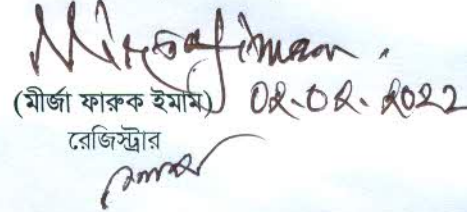 (মীর্জা ফারুক ইমাম) 02.02.2022
রেজিস্ট্রার